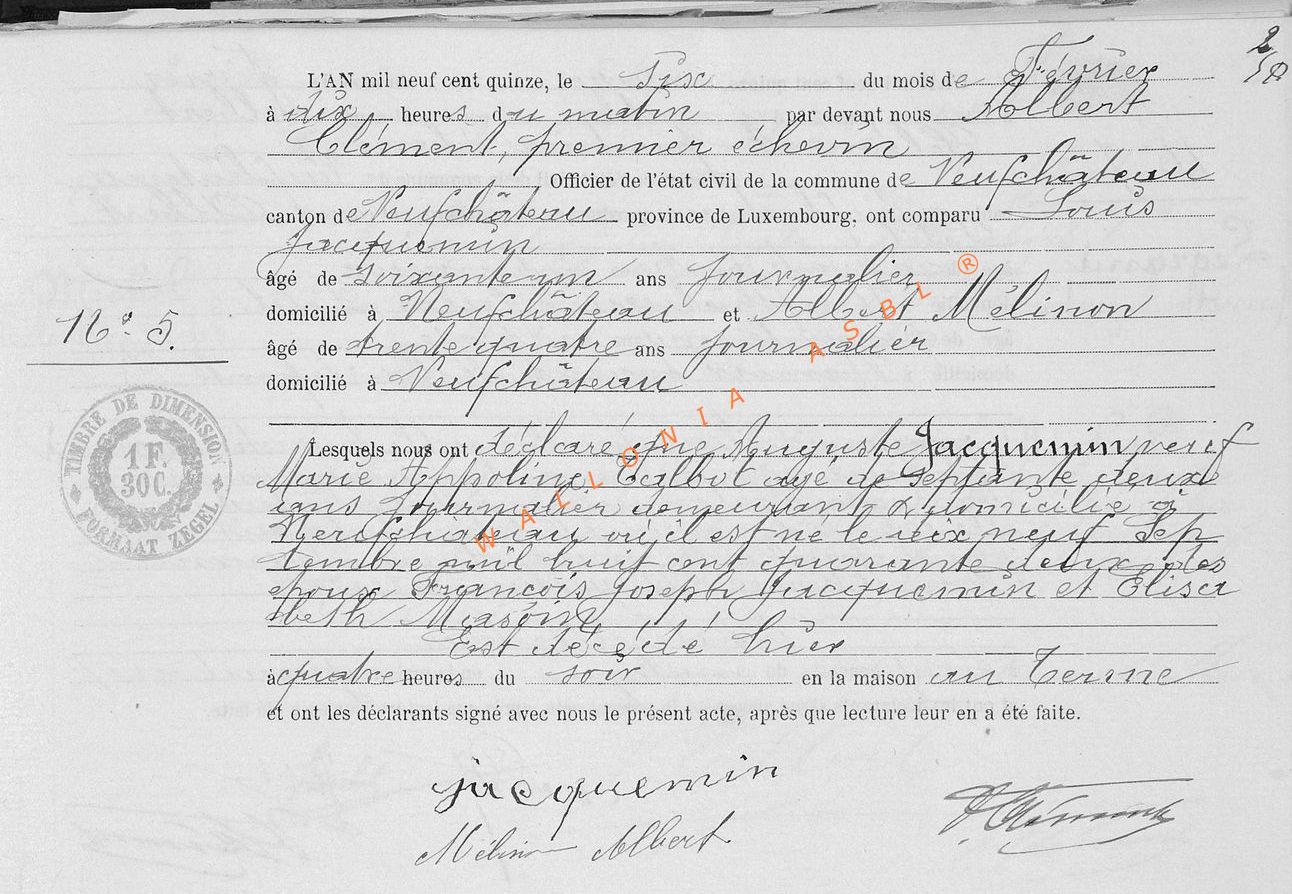 L'AN mil neuf cent quinze, le Six du mois de Février
à dix heures du matin par devant nous Albert
Clément, premier échevin
Officier de l'état civil de la commune de Neufchâteau
canton de Neufchâteau province de Luxembourg, ont comparu Louis
Jacquemin
âgé de soixante un ans journalier
domicilié à Neufchâteau et Albert Mélinon
âgé de trente quatre ans journalier
domicilié à Neufchâteau
N° 5.
TIMBRE DE DIMENSION
1 F.
30 C.
FORMAAT ZEGEL
Lesquels nous ont déclaré que Auguste Jacquemin veuf
Marie Appoline Talbot agé de Septante deux
ans journalier demeurant & domicilié à
Neufchâteau où il est né le dix neuf Sep
tembre mil huit cent quarante deux, des
epoux François Joseph Jacquemin et Elisa
beth Masoin
Est décédé hier
à quatre heures du soir en la maison au Terme
et ont les déclarants signé avec nous le présent acte, après que lecture leur en a été faite.
Jacquemin
Mélinon Albert
A Clément
WALLONIA ASBL ®